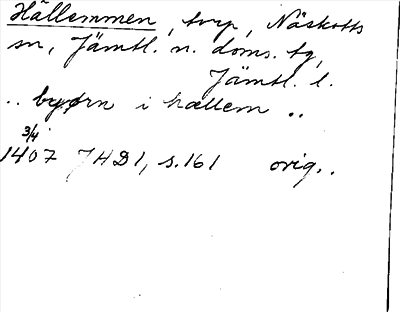 Hällemmen, torp, Näskotts
sn, Jämtl. n. doms. tg,
Jämtl. l.
.. byørn i hællem ..
3/4
1407 JHD 1, s. 161 orig..